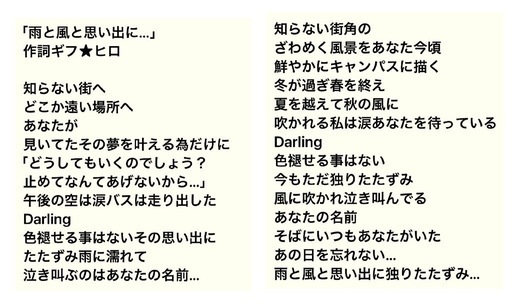 「雨と風と思い出に…」
作詞ギフ★ヒロ
知らない街へ
どこか遠い場所へ
あなたが
見いてたその夢を叶える為だけに
「どうしてもいくのでしょう?
止めてなんてあげないから…」
午後の空は涙バスは走り出した
Darling
色褪せる事はないその思い出に
たたずみ雨に濡れて
泣き叫ぶのはあなたの名前…
知らない街角の
ざわめく風景をあなた今頃
鮮やかにキャンパスに描く
冬が過ぎ春を終え
夏を越えて秋の風に
吹かれる私は涙あなたを待っている
Darling
色褪せる事はない
今もただ独りたたずみ
風に吹かれ泣き叫んでる
あなたの名前
そばにいつもあなたがいた
あの日を忘れない…
雨と風と思い出に独りたたずみ…